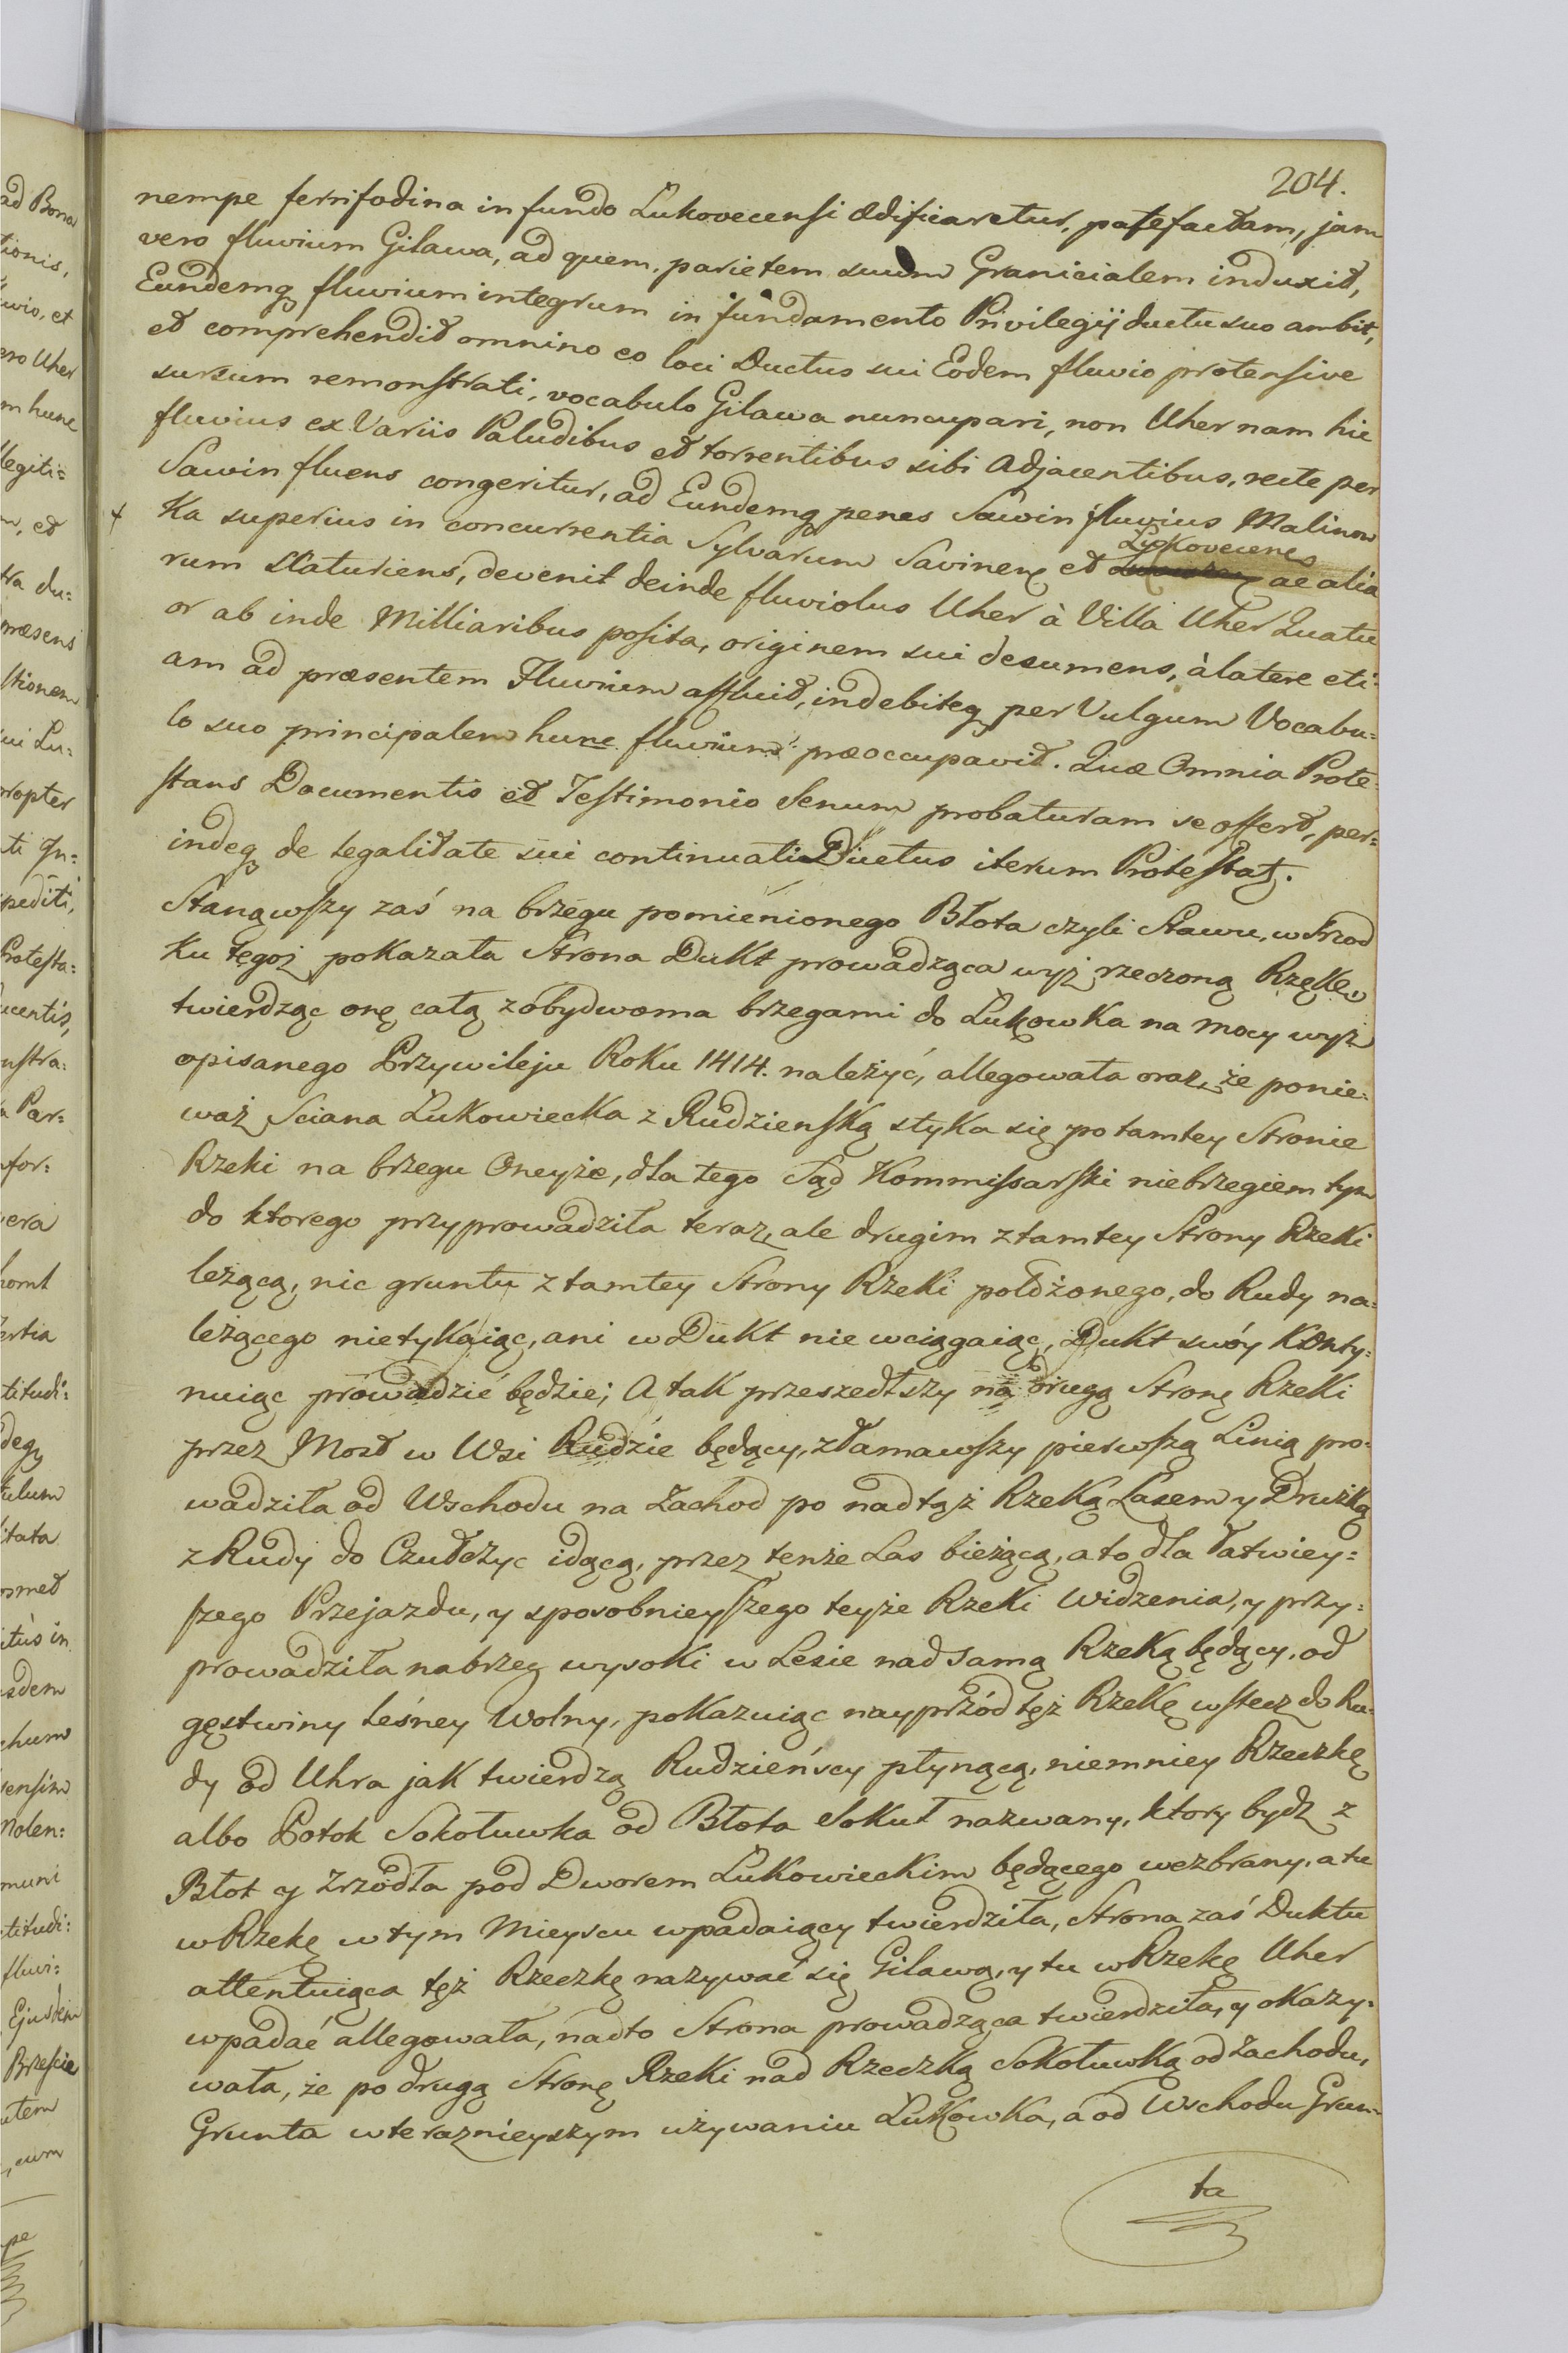 204.
nempe ferrifodina in fundo Łukovecensi ædificaretur, patefactam, jam
vero fluvium Gilawa, ad quem parietem suum Granicialem induxit,
Eundemq fluvium integrum in fundamento Privilegij ductu suo ambit,
et comprehendit omnino eo loci Ductus sui Eodem fluvio protensive
sursum remonstrati, vocabulo Gilawa nuncupari, non Uher nam hic
fluvius ex Variis Paludibus et torrentibus sibi Adjacentibus, recte per
Sawin fluens congeritur, ad Eundemq penes Sawin fluvius Malinow
+ Ka superius in concurrentia Sylvarum Savinen et Łukovecenes ac alia
rum staturiens, devenit deinde fluviolus Uher à Villa Uher Quatu
or ab inde Milliaribus posita, originem sui desumens, à latere eti-
am ad præsentem Fluvium affluit, indebiteq per Vulgum Vocabu=
lo suo principalem hunc fluvium præoccupavit. Quæ Omnia Prote=
stans Documentis et Testimonio Senum probaturam se offert, per=
indeq de legalitate sui continuati Ductus iterum Protestat.
Stanąwszy zaś na brzegu pomienionego Błota czyli Stawu, w Srzod
ku tegoż pokazała Strona Dukt prowadząca wyż rzeczoną Rzękę,
twierdząc onę całą z obydwoma brzegami do Łukowka na mocy wyż
opisanego Przywileju Roku 1414. należyć, allegowała oraz, że ponie=
waż Sciana Łukowiecka z Rudzienską styka się po tamtey Stronie
Rzeki na brzegu Oneyże, dla tego Sąd Kommissarski nie brzegiem tym
do ktorego przyprowadziła teraz, ale drugim z tamtey Strony Rzeki
leżącą, nic gruntu z tamtey Strony Rzeki położonego, do Rudy na=
leżącego nietykaiąc, ani w Dukt nie wciągaiąc, Dukt swóy Konty=
nuiąc prowadzić będzie; A tak przeszedłszy na drugą Stronę Rzeki
przez Most w Wsi Rudzie będący, złamawszy pierwszą Linią pro=
wadziła od Wschodu na Zachod po nad tąż Rzeką Lasem y Drużką
z Rudy do Czułczyc idącą, przez tenże Las bieżącą, a to dla łatwiey=
szego Przejazdu, y sposobnieyszego teyże Rzeki widzenia, y przy=
prowadziła na brzeg wysoki w Lesie nad samą Rzeką będący, od
gęstwiny leśney Wolny, pokazuiąc nayprzód tęż Rzekę wstecz do Ru=
dy od Uhra jak twierdzą Rudzieńscy płynącą, niemniey Rzeczkę
albo Potok Sokołuwka od Błota Sokuł nazwany, ktory bydz z
Błot y Zrzodła pod Dworem Łukowieckim będącego wezbrany, a tu
w Rzekę w tym Mieyscu wpadaiący twierdziła, Strona zaś Duktu
attentuiąca tęż Rzeczkę nazywać się Gilawą, y tu w Rzekę Uher
wpadać allegowała, nadto Strona prowadząca twierdziła, y okazy=
wała, że po drugą Stronę Rzeki nad Rzeczką Sokołuwką od Zachodu,
Grunta w teraznieyszym używaniu Łukowka, a od Wschodu Grun=
ta